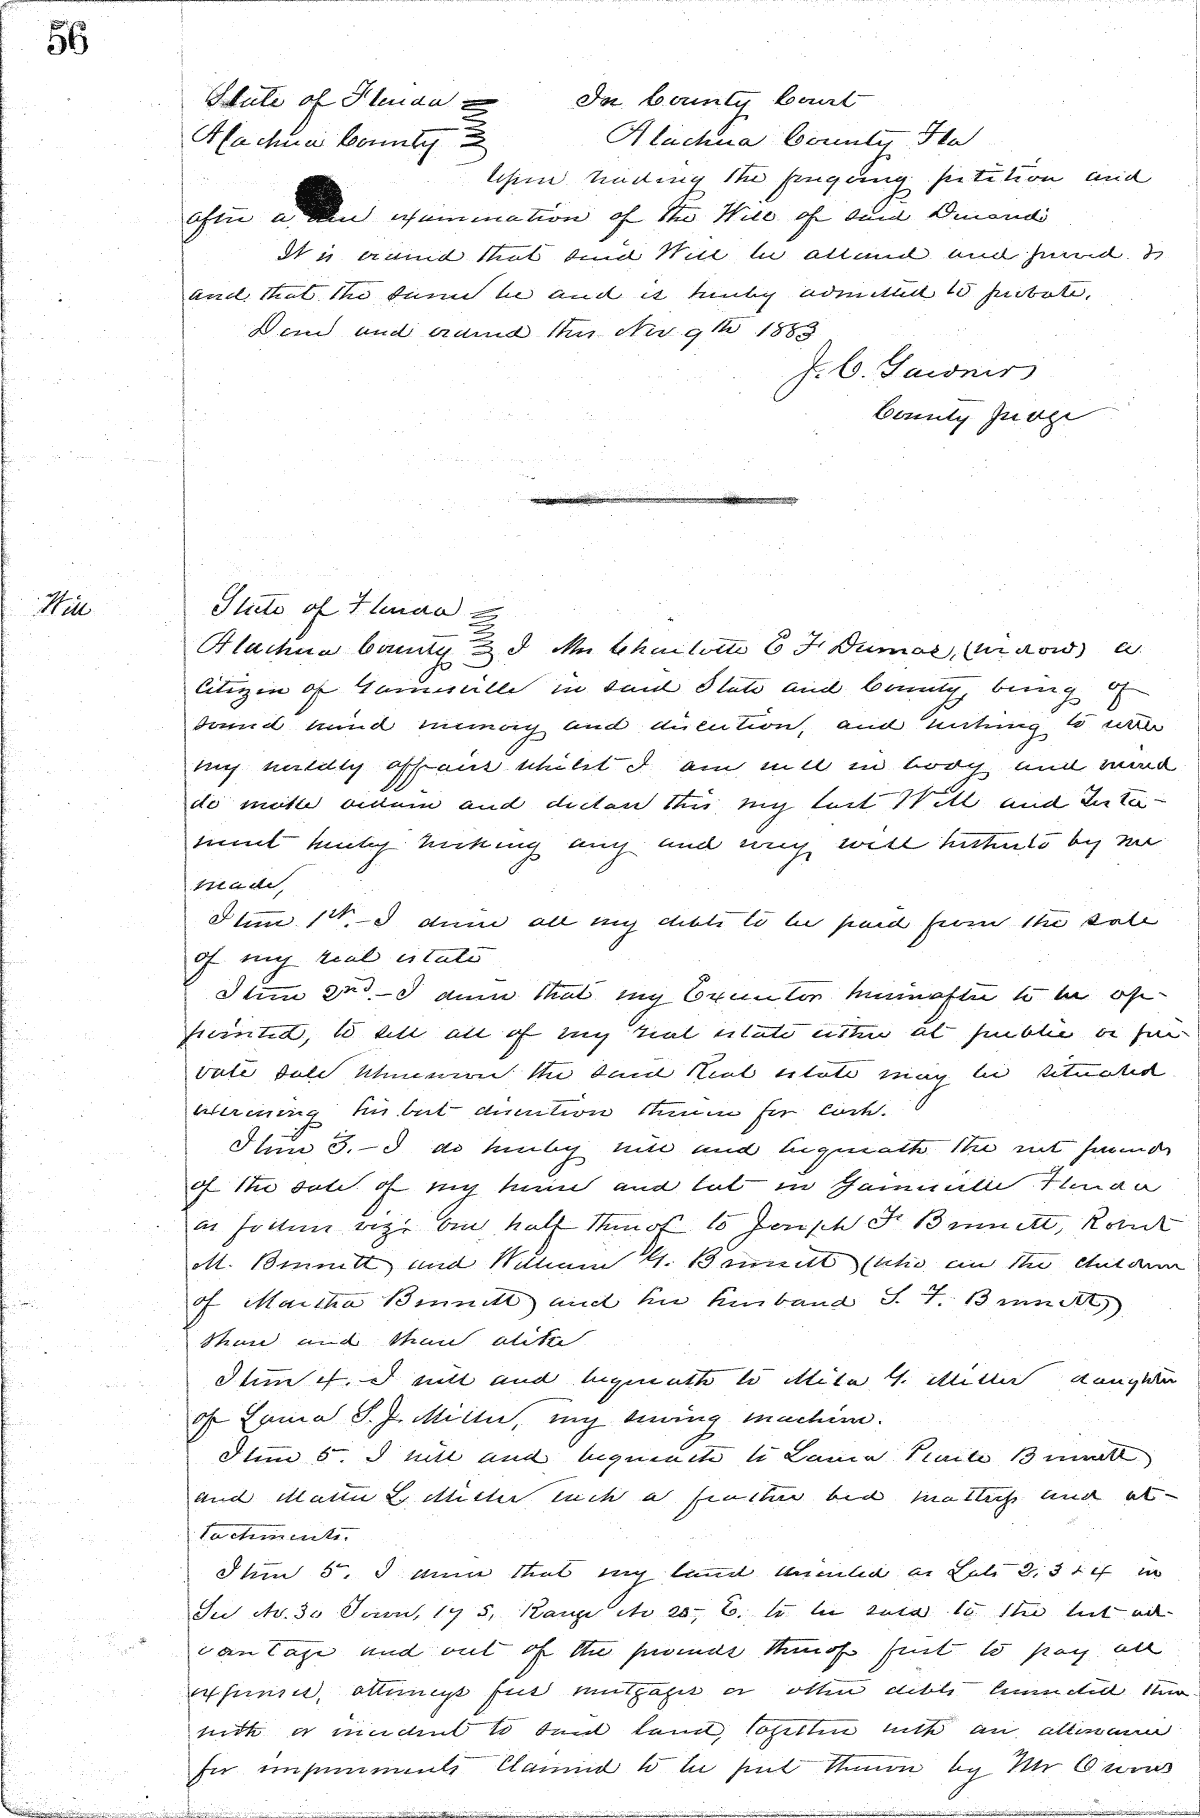 56
State of Florida In County Court
Alachua County Alachua County Fla
Upon reading the foregoing petition and
after a due examination of the Will of said Deceased
It is ordered that said Will be allowed and proved
and that the same be and is hereby admitted to probate.
Done and ordered this Nov 9th 1883
J. C. Gardner
County Judge
Will
State of Florida
Alachua County I Mrs Charlotte E F Dumas, (widow) a
Citizen of Gainesville in said State and County, being of
sound mind memory and discretion, and wishing to settle
my worldly affairs whilst I am well in body and mind
do make ordain and declare this my last Will and Testa-
ment hereby revoking any and every will hitherto by me
made,
Item 1st. - I desire all my debts to be paid from the sale
of my real estate
Item 2nd. - I desire that my Executor hereinafter to be ap-
pointed, to sell all of my real estate either at public or pri-
vate sale wheresoever the said Real estate may be situated
exercising his best discretion therein for cash.
Item 3. - I do hereby will and bequeath the net proceeds
of the sale of my house and lot in Gainesville Florida
as follows viz: one half thereof to Joseph F Bennett, Robert
M. Bennett and William G. Bennett (who are the children
of Martha Bennett and her husband S. F. Bennett)
share and share alike
Item 4. I will and bequeath to Mila G. Miller daughter
of Laura S. J. Miller, my sewing machine.
Item 5. I will and bequeath to Laura Pearle Bennett
and Mattie L. Miller each a feather bed mattress and at-
tachments.
Item 5. I desire that my land described as Lots 2, 3 & 4 in
Sec No. 30 Town, 17 S, Range No 25, E. to be sold to the best ad-
vantage and out of the proceeds thereof first to pay all
expenses, attorneys fees mortgages or other debts connected there-
with or incident to said land, together with an allowance
for improvements Claimed to be put thereon by Mr Owens